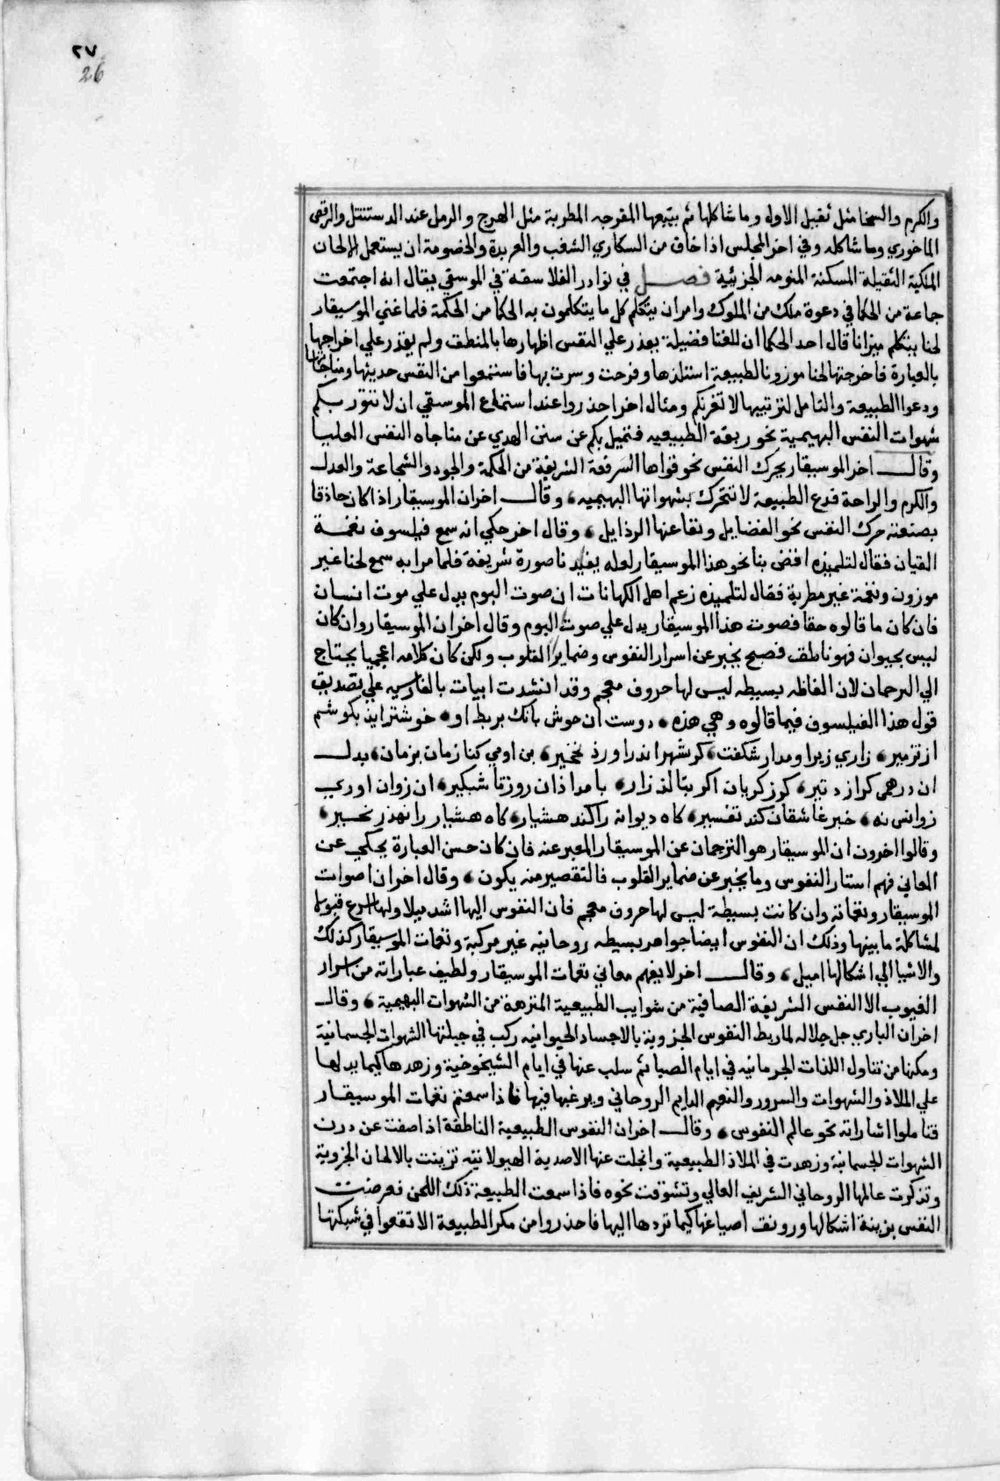 ٢٧
26
والكرم والسخا مثل ثقيل الاول وما شاكلها ثم يتبعها المفرحه المطربة مثل الهزج والرمل عند الدستبند والرقص
الماخوري وما شاكله وفي اخر المجلس اذا خاف من السكاري الشغب والعربدة والخصومة ان يستعمل الالحان
الملكية الثقيلة المسكنة المنومه الجزئية فصل في نوادر الفلاسفة في الموسقي يقال انه اجتمعت
جماعة من الحكما في دعوة ملك من الملوك وامر ان يتكلم كل ما يتكلمون به الحكما من الحكمة فلما غني الموسيقار
لحنا بتكلم ميزانا قال احد الحكما ان للغنا فضيلة يعذر علي النفس اظهارها بالمنطق ولم يقدر علي اخراجها
بالعبارة فاخرجتها لحنا موزونا لطبيعة استلذها وفرحت وسرت بها فاستمعوا من النفس حديثها ومناجاتها
ودعوا الطبيعة والتامل لتزتيبها لا تغرنكم ومثال اخر احذروا عند استماع الموسقي ان لا تثور بكم
شهوات النفس البهيمية نحو ربقة الطبيعيه فتميل بكم عن سنن الهدي عن مناجاه النفس العليا
وقال اخر الموسيقار يحرك النفس نحو قواها الشريفة من الحكمة والجود والشجاعة والعدل
والكرم والراحة فدع الطبيعة لا تتحرك بشهواتها البهيميه ، وقال اخر ان الموسيقار اذا كان حاذقا
بصنعته حرك النفس نحو الفضايل ونقا عنها الرذايل ، وقال اخر حكي انه سمع فيلسوف نغمة
القيان فقال لتلميذه افض بنا نحو هذا الموسيقار لعله يفيدنا صورة شريفة فلما مرا به سمع لحنا غير
موزون ونغمة غير مطربة فقال لتلميذه زعم اهل الكهانات ان صوت البوم يدل علي موت انسان
فان كان ما قالوه حقا فصوت هذا الموسيقار يدل علي صوت البوم وقال اخر ان الموسيقار وان كان
ليس بحيوان فهو ناطق فصيح يخبر عن اسرار النفوس وضماير القلوب ولكن كان كلامه اعجميا يحتاج
الي الترجمان لان الفاظه بسيطه ليس لها حروف معجم وقد انشدت ابيات بالفارسيه علي تصديق
قول هذا الفيلسوف فيما قالوه وهي هذه ، دوست ان خوش بانك بربط او ، خوشتر ايد بكوشم
از تزمير ، زاري زيرا ومدار شكفت ، كر شهر اندر اورذ نخجير ، بن اومي كنا زمان بزمان ، بدل
ان درهمي كراز د تير ، كرز كريان اكر بنالذ زار ، بامداذان روز تا شبكير ، ان زوان اوري
زوانس نه ، خبر عاشقان كند تفسير ، كاه ديوانه را كند هشيار ، كاه هشيار را نهذر نحبير ،
وقالوا اخرون ان الموسيقار هو الترجمان عن الموسيقار المعبر عنه فان كان حسن العبارة يحكي عن
المعاني فهم استار النفوس وما يخبر عن ضماير القلوب فالتقصير منه يكون ، وقال اخر ان اصوات
الموسيقار ونغماته وان كانت بسيطة ليس لها حروف معجم فان النفوس اليها اشد ميلا ولها اسرع قبولا
لمشاكلة ما بينها وذلك ان النفوس ايضا جواهر بسيطه روحانيه غير مركبة ونغمات الموسيقار كذلك
والاشيا الي اشكالها اميل ، وقال اخر لا يفهم معاني نغمات الموسيقار ولطيف عباراته من اسرار
الغيوب الا النفس الشريفة الصافية من شوايب الطبيعية المنزهة من الشهوات البهيمية ، وقال
اخر ان الباري جل جلاله لما ربط النفوس الجزوية بالاجساد الحيوانيه ركب في جبلتها الشهوات الجسمانية
ومكنها من تناول اللذات الجرمانيه في ايام الصبا ثم سلب عنها في ايام الشيخوخية وزهدها كيما يدلها
علي الملاذ والشهوات والسرور والنعيم الدايم الروحاني ويرغبها فيها فاذا سمعتم نغمات الموسيقار
فتاملوا اشاراته نحو عالم النفوس ، وقال اخر ان النفوس الطبيعية الناطقة اذا صفت عن درن
الشهوات الجسمانية وزهدت في الملاذ الطبيعية وانجلت عنها الاصدية الهيولانيه تزينت بالالحان الجزوية
وتذكرت عالمها الروحاني الشريف العالي وتشوقت نحوه فاذا سمعت الطبيعة ذلك اللحن تعرضت
النفس بزينة اشكالها ورونق اصباغها كيما تردها اليها فاحذروا من مكر الطبيعة الا تقعوا في شبكتها